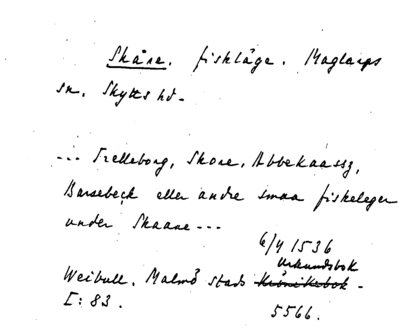 Skåre. fiskläge. Maglarps
sn. Skytts hd.
--- Trelleborg, Skore, Abbekaassz,
Barsebeck eller andre smaa fiskeleger
under Skaane ---
6/4 1536
Urkundsbok
Weibull. Malmö stads Krönikebok -
I: 83.
5566.